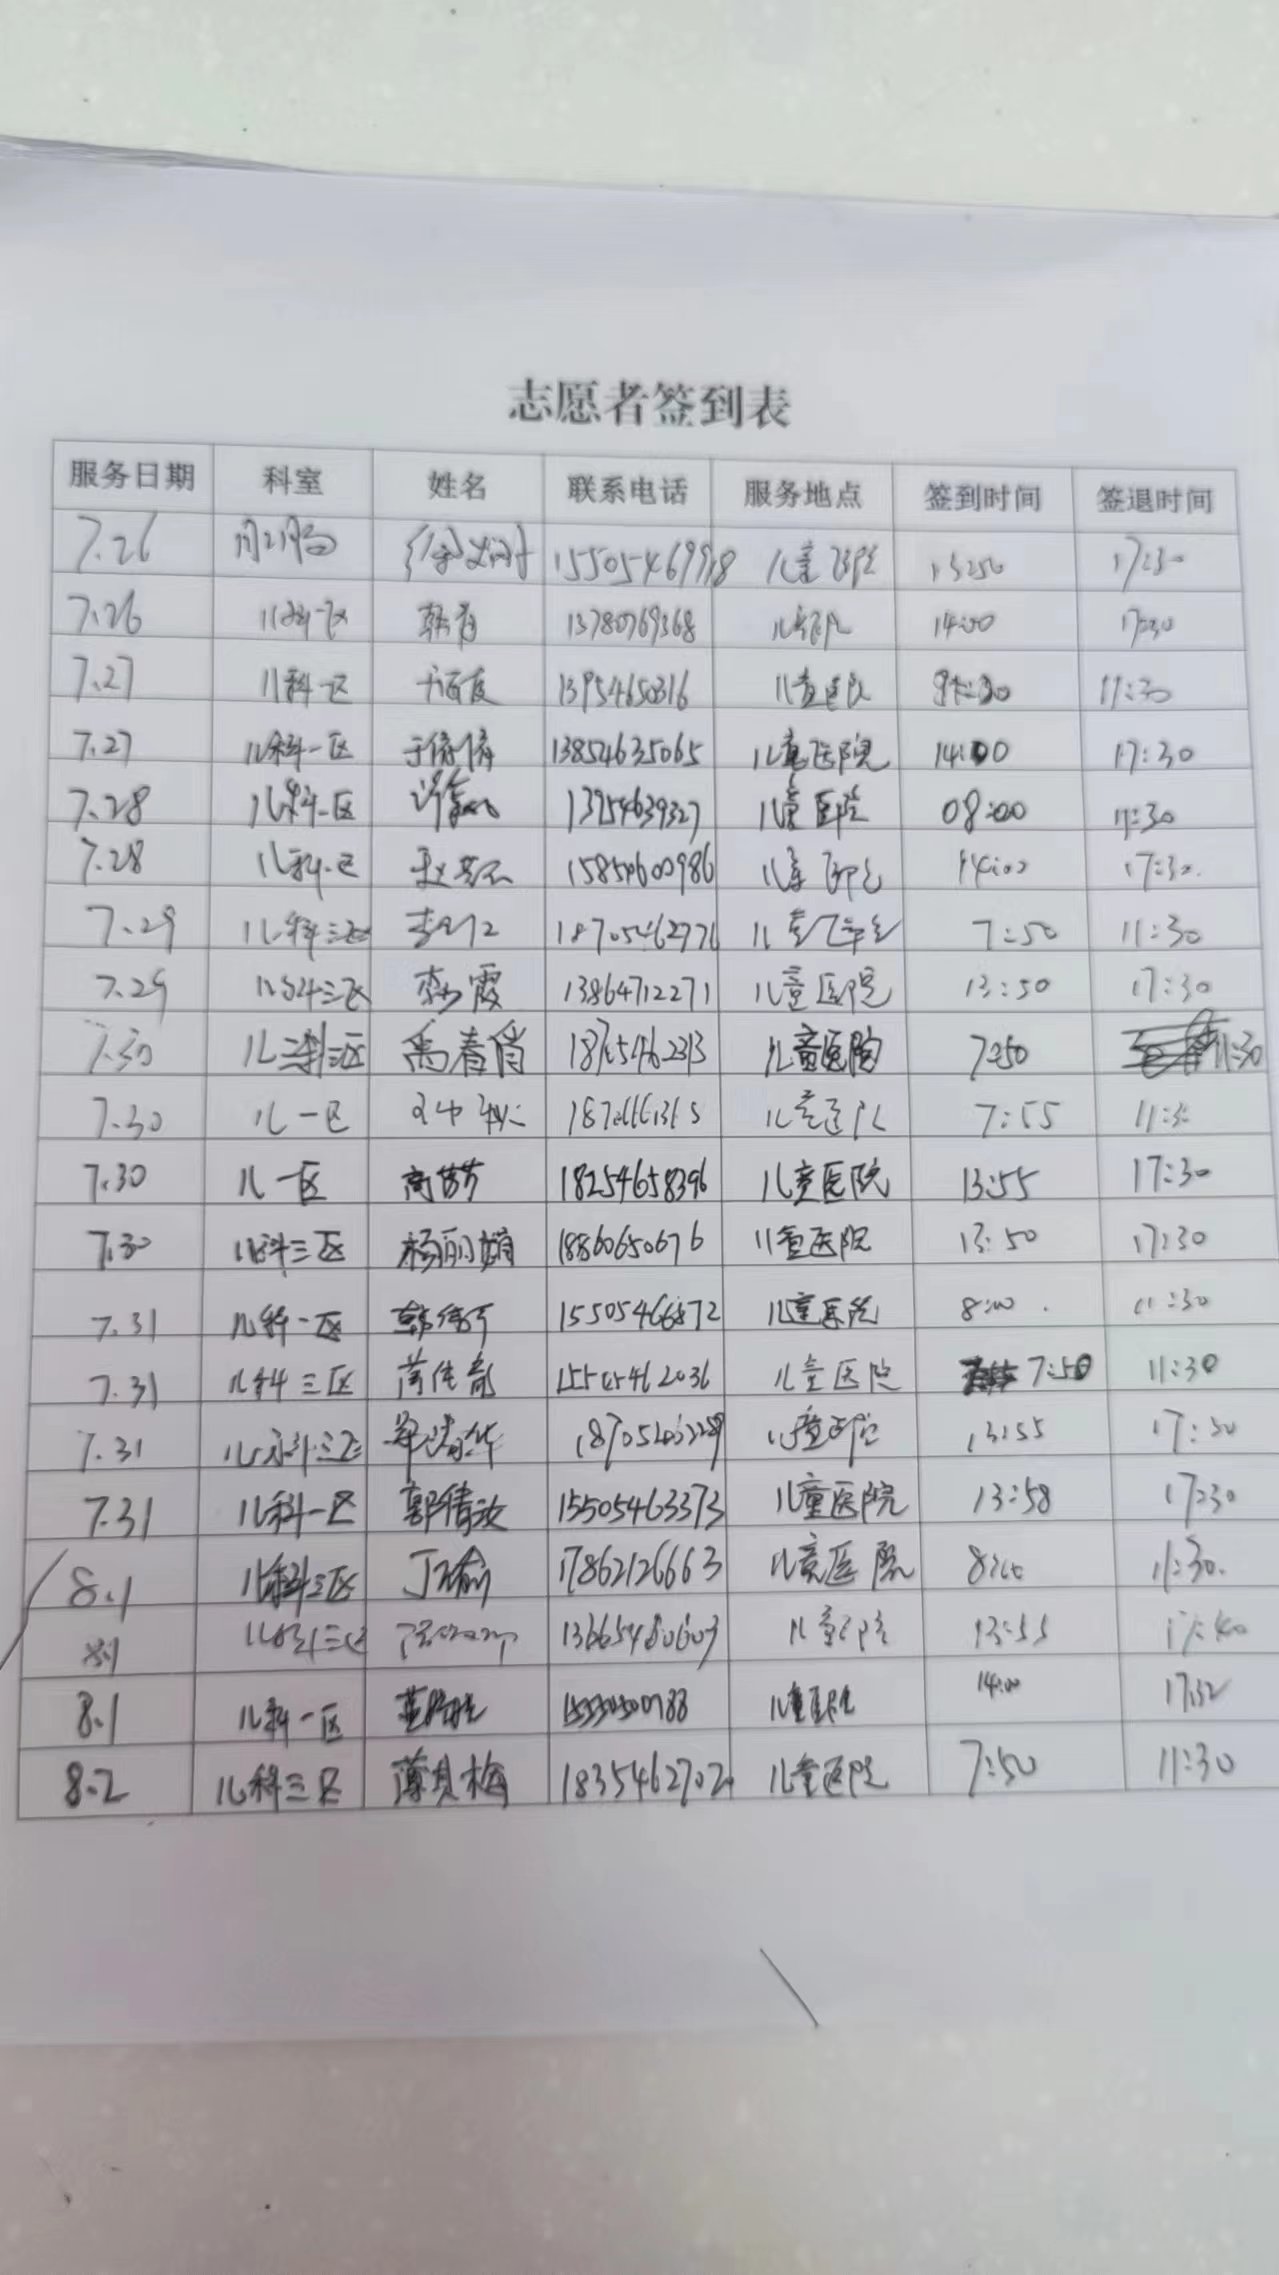 志愿者签到表
服务日期 科室 姓名 联系电话 服务地点 签到时间 签退时间
7.26 15505469998 儿童医院 13:50 17:30
7.26 儿科一区 韩青 13780769368 儿童医院 14:00 17:30
7.27 儿科一区 13954650316 儿童医院 11:30
7.27 儿科一区 于倩倩 13854635065 儿童医院 14:00 17:30
7.28 儿科一区 13954639327 儿童医院 08:00 11:30
7.28 儿科一区 15854600986 儿童医院 14:00 17:30
7.29 儿科三区 18705462776 儿童医院 7:50 11:30
7.29 儿科三区 13864712271 儿童医院 13:50 17:30
7.30 儿科三区 禹春俏 儿童医院 7:50 11:30
7.30 儿一区 儿童医院 7:55 11:30
7.30 儿一区 高苗苗 18254658396 儿童医院 13:55 17:30
7.30 儿科三区 杨丽娟 18860650676 儿童医院 13:50 17:30
7.31 儿科一区 15505466872 儿童医院 8:00 11:30
7.31 儿科三区 15505462036 儿童医院 7:50 11:30
7.31 儿科三区 儿童医院 13:55 17:30
7.31 儿科一区 郭倩汝 15505463373 儿童医院 13:58 17:30
8.1 儿科三区 丁瑜 17862126663 儿童医院 8:00 11:30
8.1 儿科三区 13665480603 儿童医院 13:55 17:40
8.1 儿科一区 儿童医院 14:00 17:32
8.2 儿科三区 薄其梅 1835462702 儿童医院 7:50 11:30